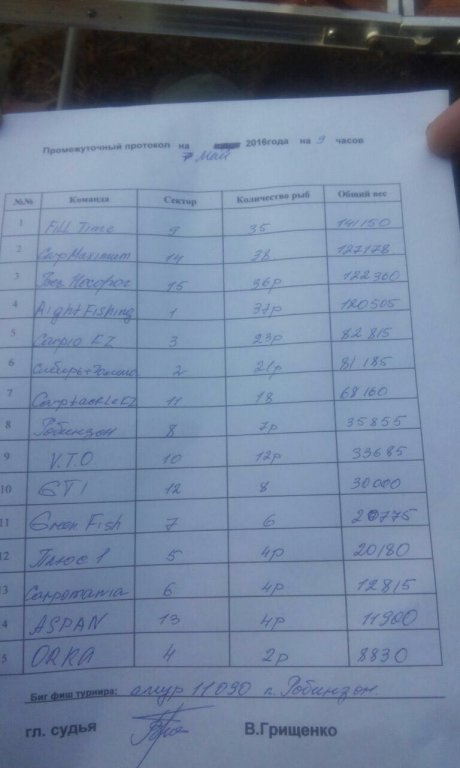 Промежуточный протокол на 7 Май 2016года на 9 часов
№№ Команда Сектор Количество рыб Общий вес
1 Fill Time 9 35 141150
2 CarpMaximum 14 28 127178
3 15 36р 122360
4 Right Fishing 1 37р 120505
5 Carpio KZ 3 23р 82815
6 2 21р 81185
7 Carptackle KZ 11 18 68160
8 Робинзон 8 7р 35855
9 V.T.O 10 12р 33685
10 GTI 12 8 30000
11 Green Fish 7 6 20775
12 Плюс 1 5 4р 20180
13 Carpomania 6 4р 12815
4 ASPAN 13 4р 11900
5 ORKA 4 2р 8830
Биг фиш турнира: амур 11090 к. Робинзон.
гл. судья В.Грищенко